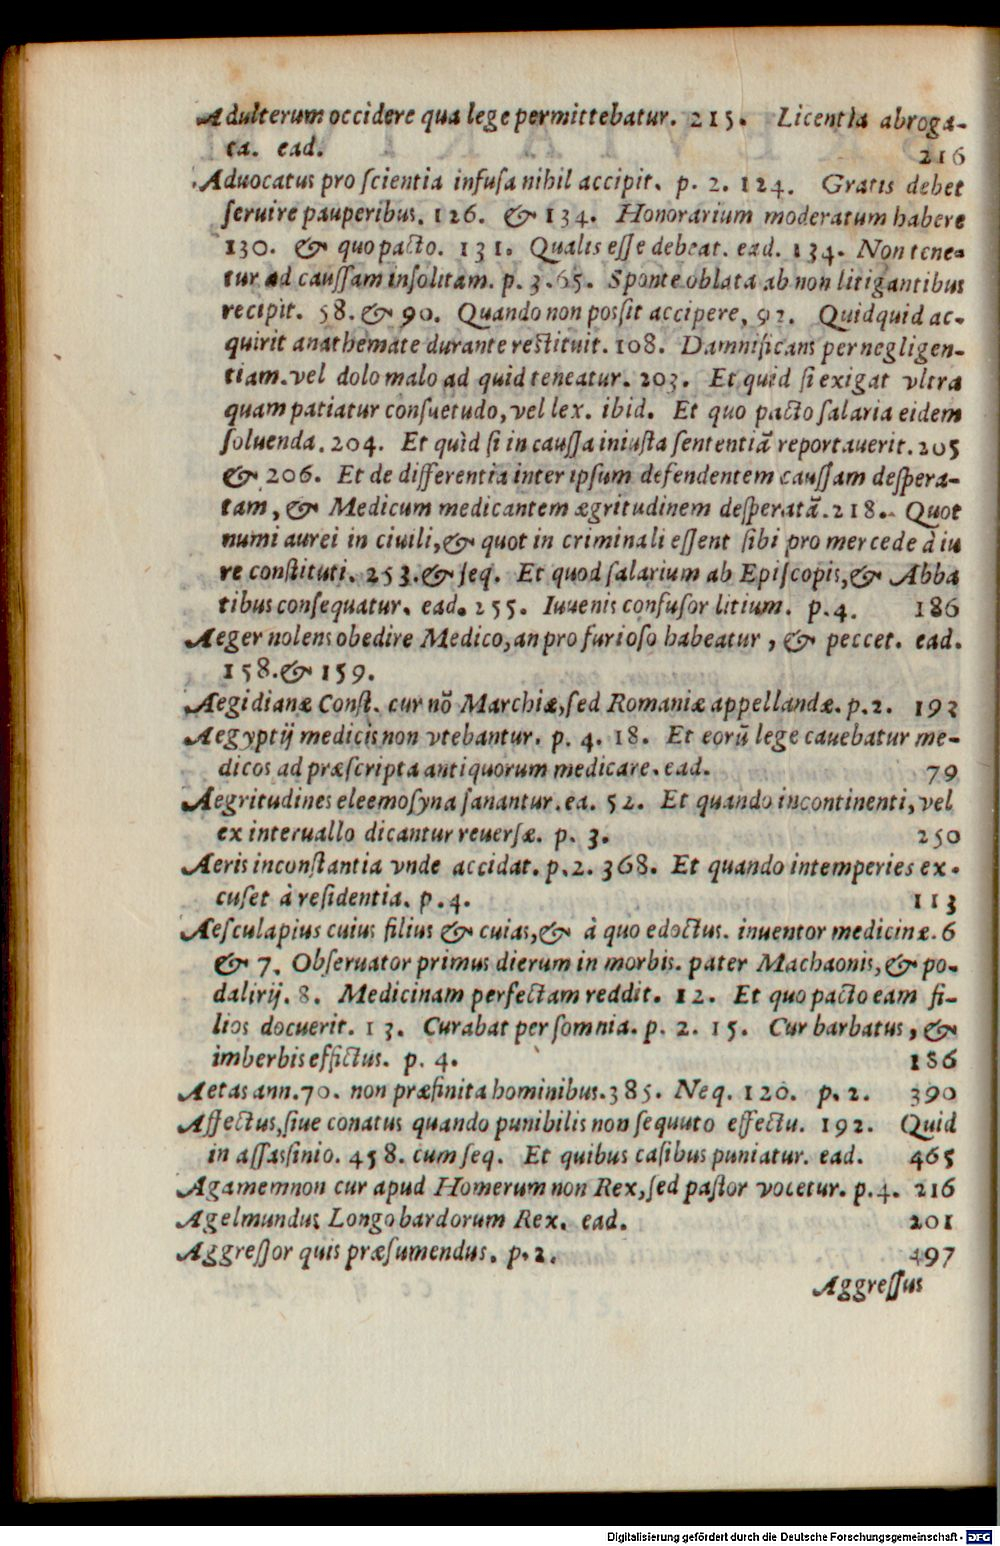 Adulterum occidere qua lege permittebatur. 215. Licentia abroga-
ta. ead. 216
Aduocatus pro scientia infusa nihil accipit. p. 2. 124. Gratis debet
seruire pauperibus. 126. & 134. Honorarium moderatum habere
130. & quo pacto. 131. Qualis esse debeat. ead. 134. Non tene-
tur ad caussam insolitam. p. 3. 65. Sponte oblata ab non litigantibus
recipit. 58. & 90. Quando non possit accipere, 92. Quidquid ac-
quirit anathemate durante restituit. 108. Damnificans per negligen-
tiam. vel dolo malo ad quid teneatur. 203. Et quid si exigat vltra
quam patiatur consuetudo, vel lex. ibid. Et quo pacto salaria eidem
soluenda. 204. Et quid si in caussa iniusta sententiã reportauerit. 205
& 206. Et de differentia inter ipsum defendentem caussam despera-
tam, & Medicum medicantem ægritudinem desperatã. 218. Quot
numi aurei in ciuili, & quot in criminali essent sibi pro mercede à iu
re constituti. 253. & seq. Et quod salarium ab Episcopis, & Abba
tibus consequatur. ead. 255. Iuuenis confusor litium. p. 4. 186
Aeger nolens obedire Medico, an pro furioso habeatur, & peccet. ead.
158. & 159.
Aegidianæ Const. cur nõ Marchiæ, sed Romaniæ appellandæ. p. 2. 192
Aegyptij medicis non vtebantur. p. 4. 18. Et eorũ lege cauebatur me-
dicos ad præscripta antiquorum medicare. ead. 79
Aegritudines eleemosyna sanantur. ea. 52. Et quando incontinenti, vel
ex interuallo dicantur reuersæ. p. 3. 250
Aeris inconstantia vnde accidat. p. 2. 368. Et quando intemperies ex-
cuset à residentia. p. 4. 113
Aesculapius cuius filius & cuias, & à quo edoctus. inuentor medicinæ. 6
& 7. Obseruator primus dierum in morbis. pater Machaonis, & po-
dalirij. 8. Medicinam perfectam reddit. 12. Et quo pacto eam fi-
lios docuerit. 13. Curabat per somnia. p. 2. 15. Cur barbatus, &
imberbis effictus. p. 4. 186
Aetas ann. 70. non præfinita hominibus. 385. Neq. 120. p. 2. 390
Affectus, siue conatus quando punibilis non sequuto effectu. 192. Quid
in assassinio. 458. cum seq. Et quibus casibus puniatur. ead. 465
Agamemnon cur apud Homerum non Rex, sed pastor vocetur. p. 4. 216
Agelmundus Longobardorum Rex. ead. 201
Aggressor quis præsumendus. p. 2. 497
Aggressus
Digitalisierung gefördert durch die Deutsche Forschungsgemeinschaft - DFG